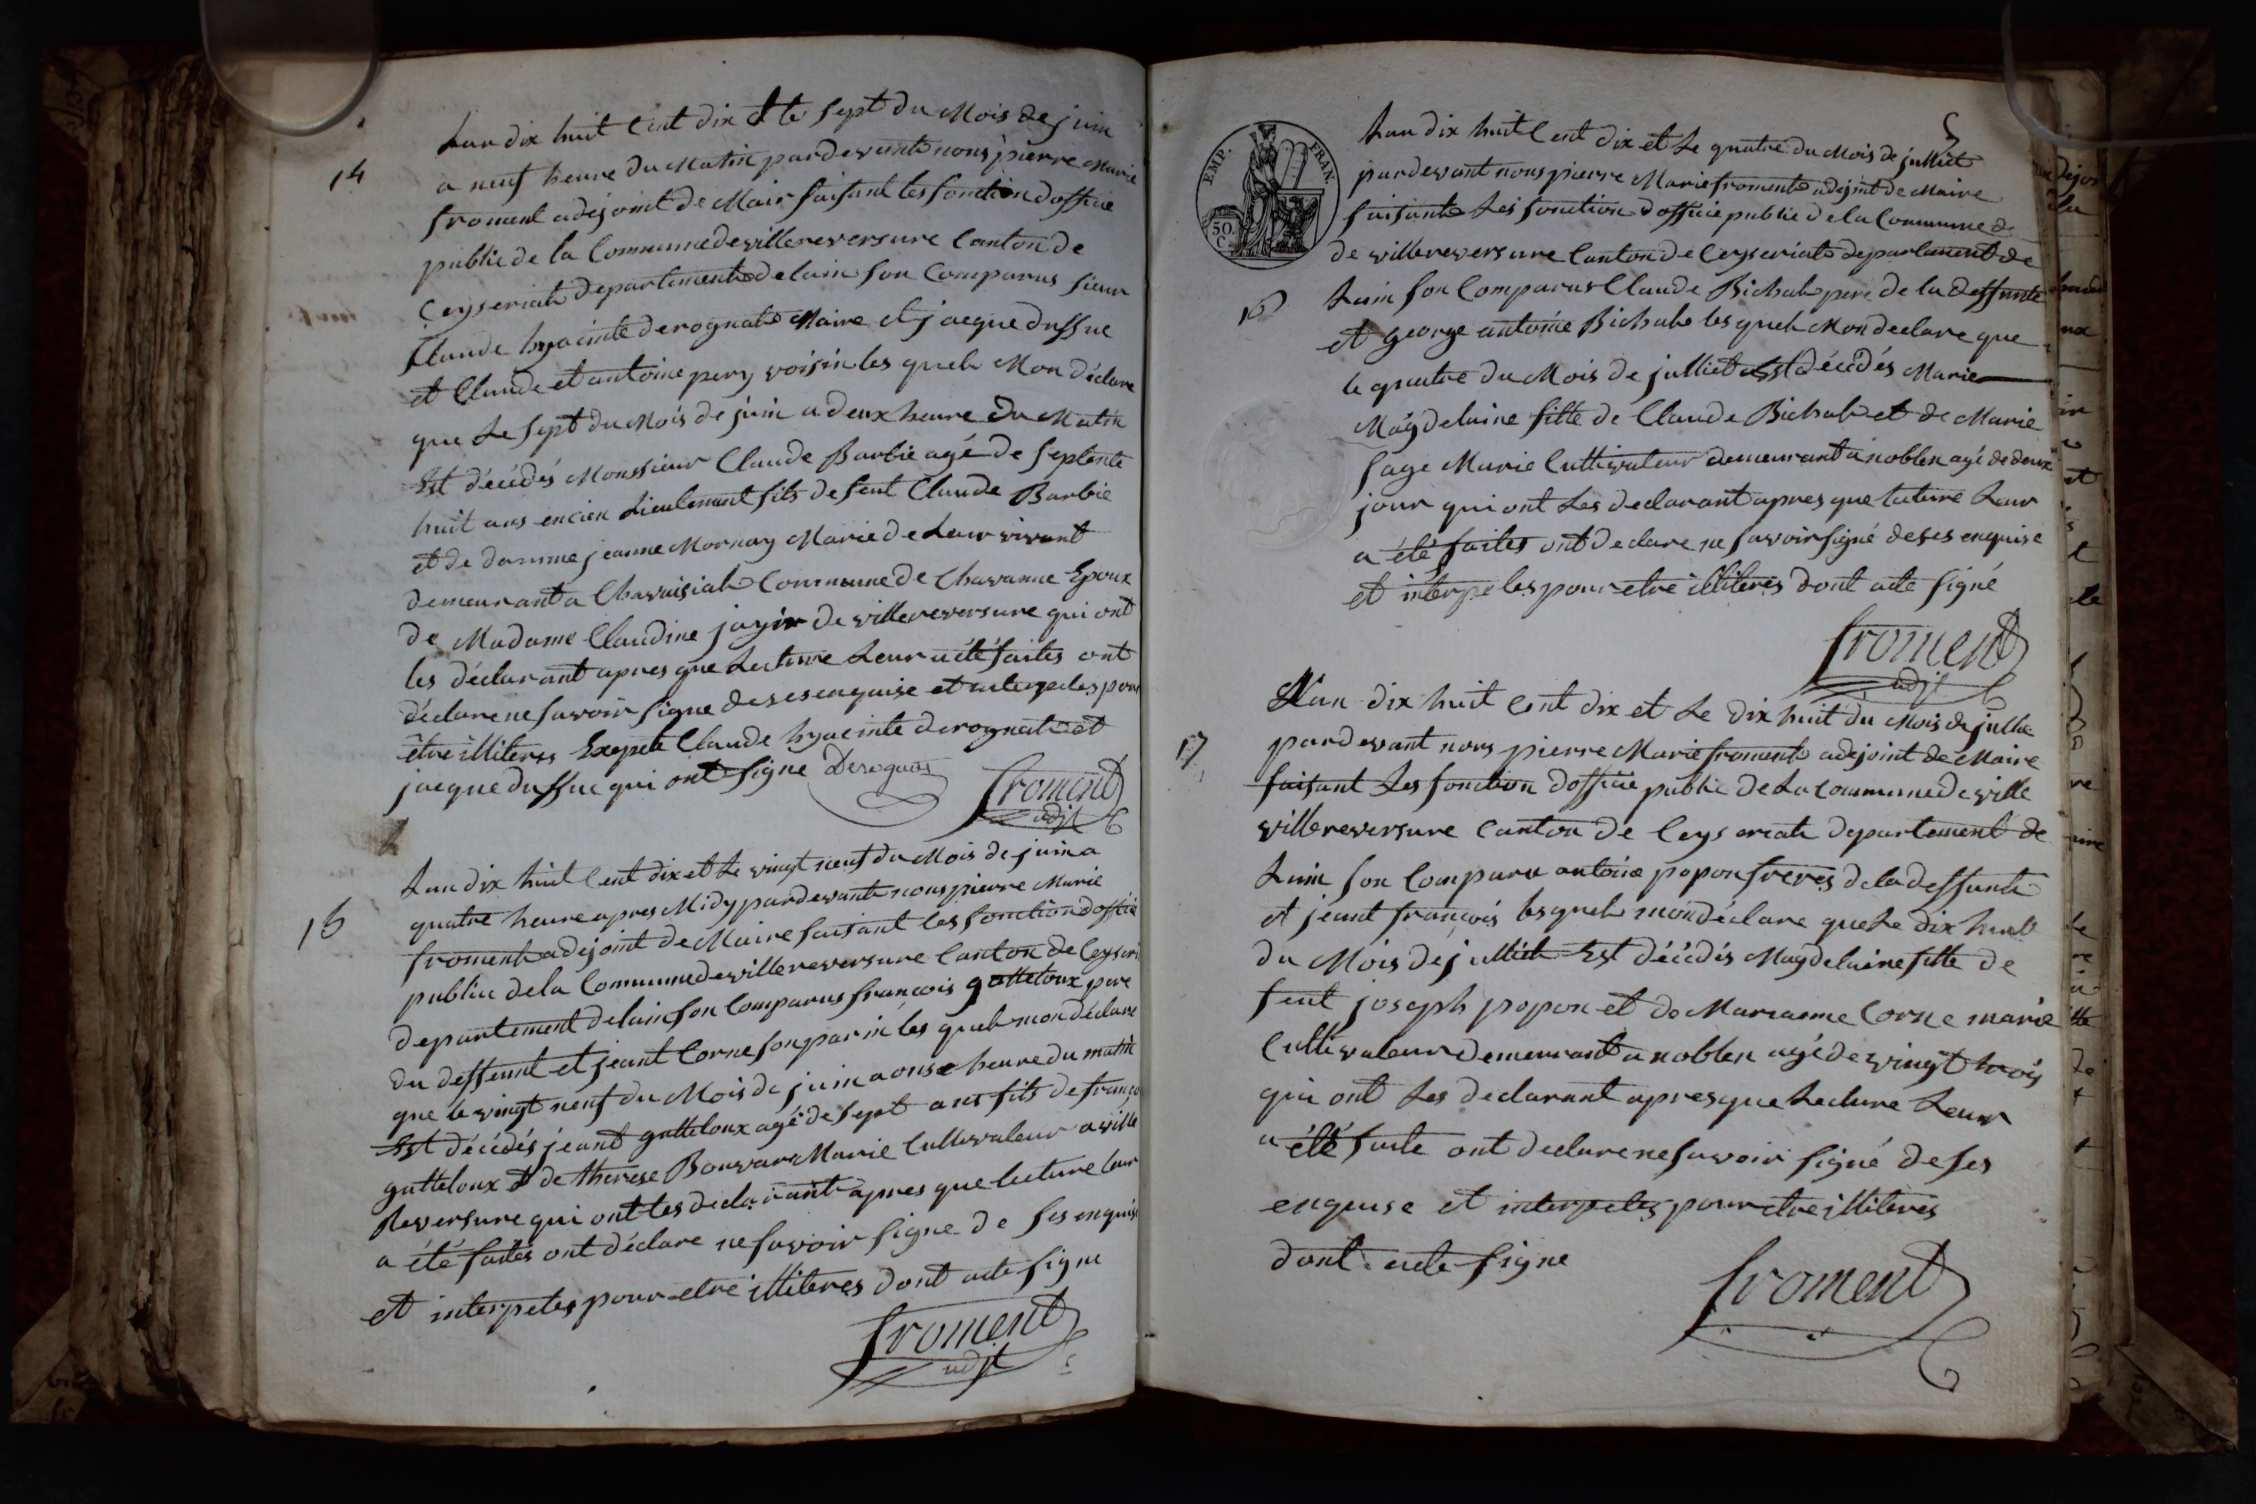 14
Lan dix huit Cent dix et le sept du Mois de juin
a neuf heure du Matin pardevant nous pierre Marie
froment adejoint de Mair faisant les fonction dofficie
public de la Commune de villereversure Canton de
Ceyseriat departement de lain son Comparus sieur
Claude hyacinte derognat Maire et jacque duffue
et Claude et antoine pery voisin les quels Mon déclare
que Le sept du Mois de juin a deux heure du Matin
Est décédés Monssieur Claude Barbie agé de septente
huit ans encien Lieutenant fils de feut Claude Barbie
et de damme jeanne Mornay Marie de Leur vivant
demeurant a Chavaisiat Commune de Chavanne Epoux
de Madame Claudine jayir de villereversure qui ont
les déclarant apres que Lecture Leur a été faites ont
déclare ne savoir signe de ses enquise et interpeles pour
être illiteres Exepté Claude hyacinte derognat et
jacque duffue qui ont signe Derognat froment
adjt
15
Lan dix huit Cent dix et Le vingt neuf du Mois de juin a
quatre heure apres Midy pardevant nous pierre Marie
froment adejoint de Maire faisant les fonction doffcie
public de la Commune de villereversure Canton de Ceyseri
departement de lain son Comparus francois gutteloux pere
du deffeunt et jeant Corne son parin les quels mon déclare
que le vingt neuf du Mois de juin a onse heure du matin
Est décédés jeant gutteloux agé de sept ans fils de franço
gutteloux et de therese Bouvard Marie Cultivateur a ville
Reversure qui ont les declarant apres que lecture leur
a été faites ont déclare ne savoir signe de ses enquise
et interpeles pour etre illiteres dont acte signe
froment
adjt
5
EMP. FRAN.
50. C.
Lan dix huit Cent dix et Le quatre du Mois de julliet
pardevant nous pierre Marie froment adejint de Maire
faisant Les fonction dofficie public de la Commune de
de villereversure Canton de Ceyseriat departement de
16
Lain son Comparus Claude Bichat pere de la deffunte
et george antoine Bichat les quels Mon declare que
le quatre du Mois de julliet Est décédés Marie
Magdelaine fille de Claude Bichat et de Marie
sage Marie Cultivateur demeurant a noblen agé de deux
jour qui ont Les declarant apres que luture Leur
a été faites ont declare ne savoir signé de ses enquise
et interpeles pour etre illiteres dont acte signé
froment
adjt
17
Lan dix huit Cent dix et Le dix huit du Mois de jullie
pardevant nous pierre Marie froment adejoint de Maire
faisant Les fonction dofficie public de La Commune de ville
villereversure Canton de Ceyseriat departement de
Lain son Comparu antoine popon freres de la deffunte
et jeant francois les quels mon déclare que Le dix huit
du Mois de julliet Est décédés Magdelaine fille de
feut joseph popon et de Marianne Corne marie
Cultivateur demeurant a noblen agé de vingt trois
qui ont Les declarant apres que Lecture Leur
a été faite ont declare ne savoir signé de ses
enquise et interpeles pour etre illiteres
dont acte signe
froment